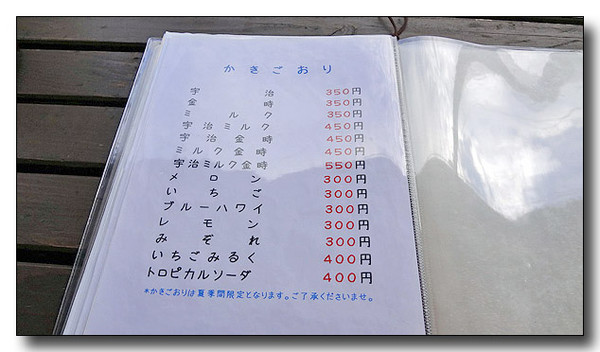 かきごおり
宇治 350円
金時 350円
ミルク 350円
宇治ミルク 450円
宇治金時 450円
ミルク金時 450円
宇治ミルク金時 550円
メロン 300円
いちご 300円
ブルーハワイ 300円
レモン 300円
みぞれ 300円
いちごみるく 400円
トロピカルソーダ 400円
*かきごおりは夏季間限定となります。ご了承くださいませ。